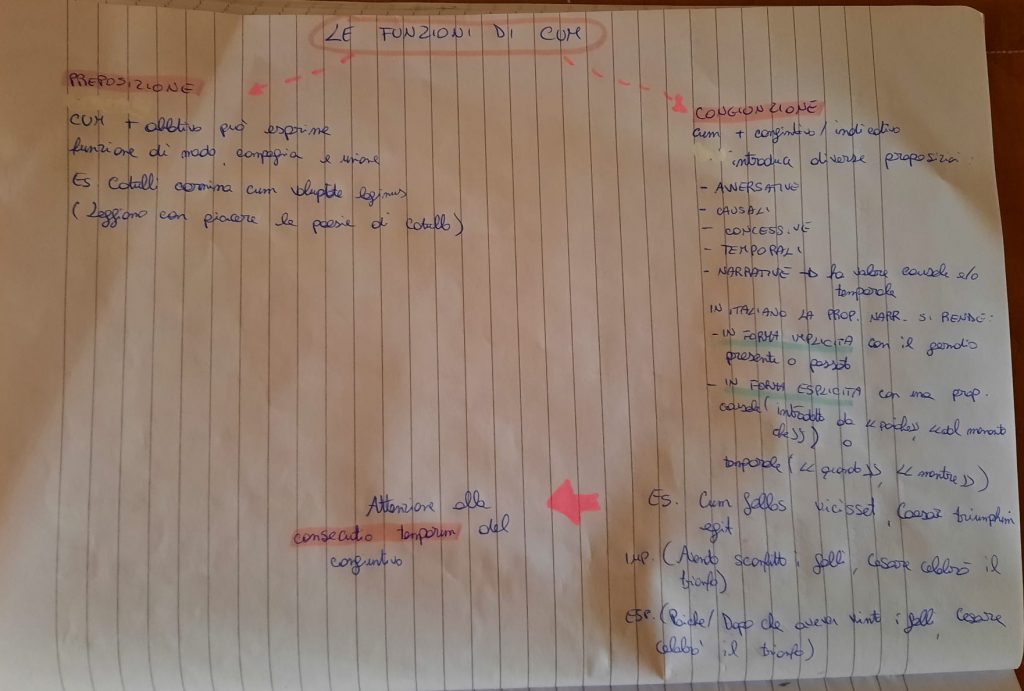 LE FUNZIONI DI CUM
PREPOSIZIONE
CUM + ablativo può esprime
funzione di modo, compagia e unione
Es. Catulli carmina cum voluptte legimus
(Leggiamo con piacere le poesie di Catullo)
CONGIUNZIONE
cum + congintivo / indicativo
introduca diverse proposizioni:
- AVVERSATIVE
- CAUSALI
- CONCESSIVE
- TEMPORALI
- NARRATIVE → ha valore causale e/o
temporale
IN ITALIANO LA PROP. NARR. SI RENDE:
- IN FORMA IMPLICITA con il gerundio
presente o passato
- IN FORMA ESPLICITA con una prop.
causale (introdotta da «poiché», «dal momento
che») o
temporale («quando», «mentre»)
Es. Cum Gallos vicisset, Caesar triumphum
egit
IMP. (Avendo sconfitto i Galli, Cesare celebrò il
trionfo)
ESP. (Poiché/ Dopo che aveva vinto i Galli, Cesare
celebrò il trionfo)
Attenzione alla
consecutio temporum del
congiuntivo